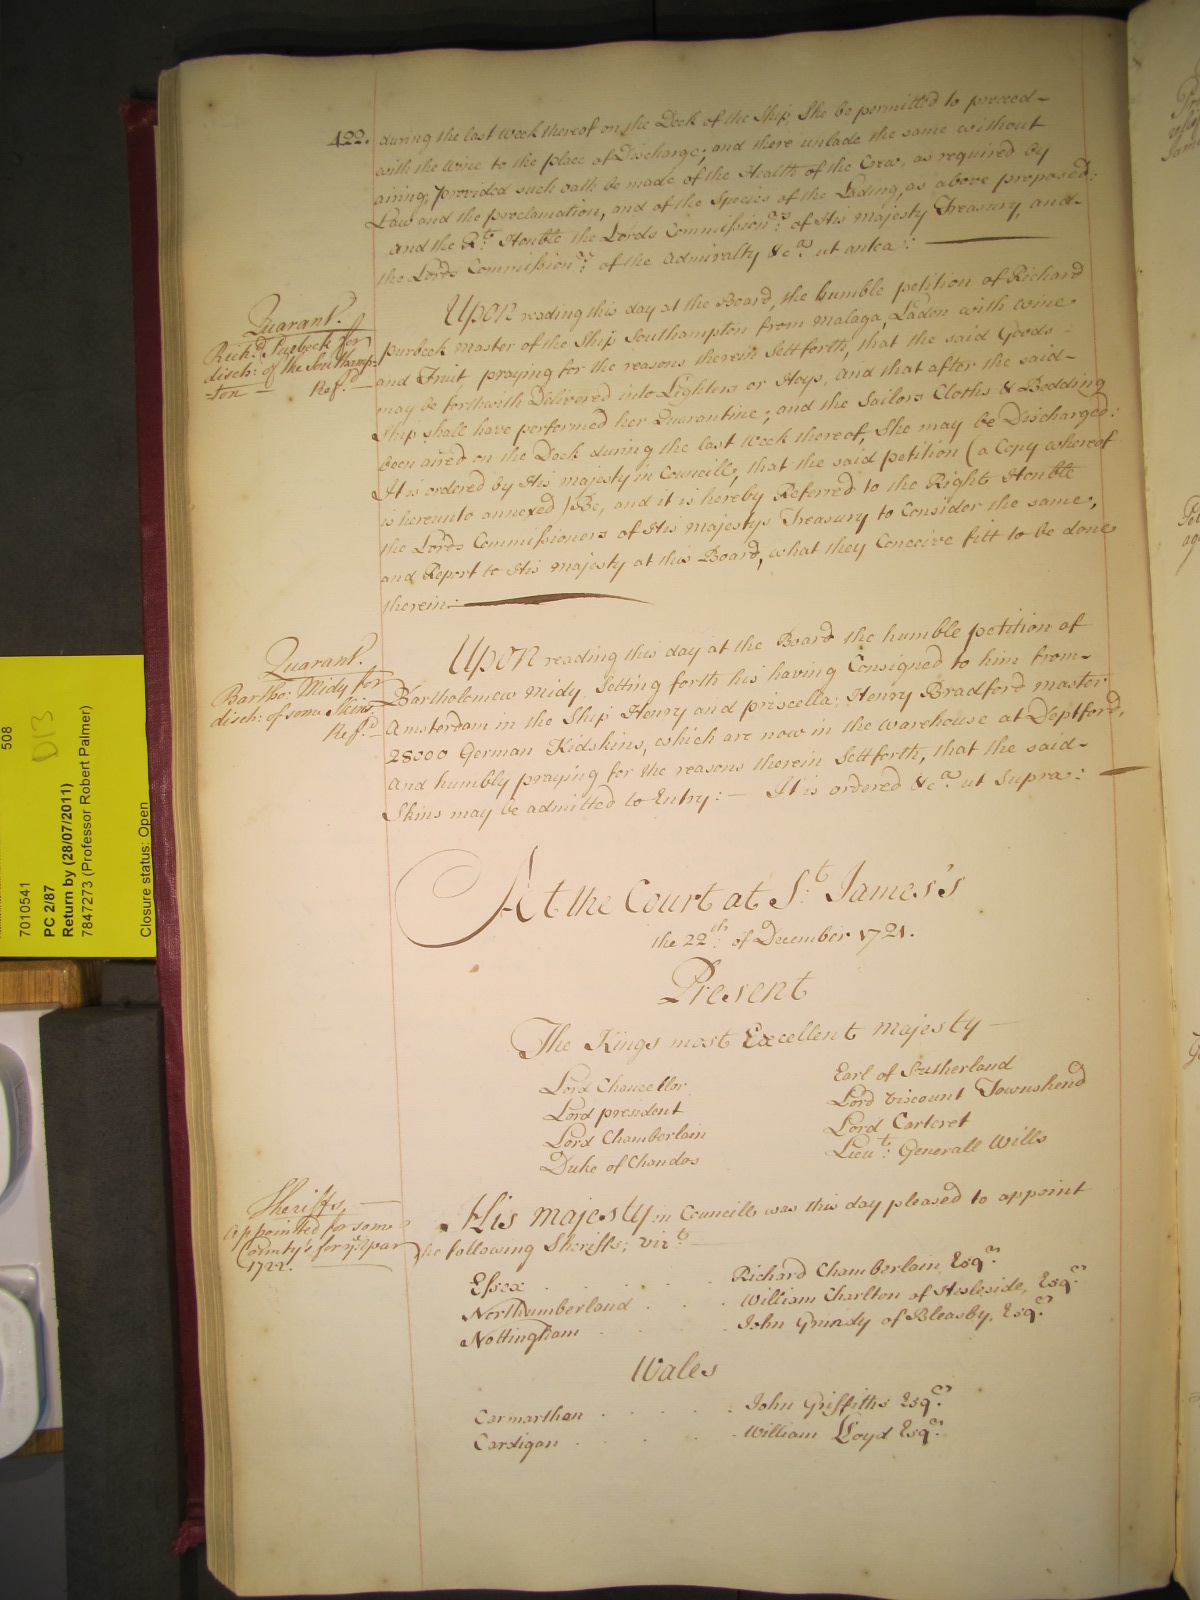 422.
during the last Week thereof on the Deck of the Ship, She be permitted to proceed
with the Wine to the place of Discharge; and there unlade the same without
airing; provided such oath be made of the Health of the Crew, as required by
Law and the proclamation, and of the Species of the Lading, as above proposed:
And the Rt. Honble the Lords Commissionrs. of His Majesty Treasury, and
the Lords Commissionrs. of the Admiralty &ca. ut antea:
Quarant.
Richd. Purbeck for
disch: of the Southamp-
-ton Refd.
Upon reading this day at the Board, the humble petition of Richard
purbeck Master of the Ship Southampton from Malaga, Laden with wine
and Fruit praying for the reasons therein Sett forth, that the said Goods
may be forthwith Delivered into Lighters or Hoys, and that after the said
Ship shall have performed her Quarantine; and the Sailors Cloths & Bedding
been aired on the Deck during the last Week thereof, She may be Discharged:
It is ordered by His Majesty in Councill, that the said petition (a Copy whereof
is hereunto annexed) Be, and it is hereby Referred to the Right Honble
the Lords Commissioners of His Majestys Treasury to Consider the same,
and Report to His Majesty at this Board, what they Conceive fitt to be done
therein:
Quarant.
Bartho: Midy for
disch: of some Skins
Refd.
Upon reading this day at the Board the humble petition of
Bartholomew Midy, Setting forth his having Consigned to him from
Amsterdam in the Ship Henry and priscella; Henry Bradford Master
28000 German Kidskins, which are now in the warehouse at Deptford,
And humbly praying for the reasons therein Sett forth, that the said
Skins may be admitted to Entry: — It is ordered &ca. ut Supra:
At the Court at St. James's
the 22th: of December 1721.
Present
The Kings most Excellent Majesty
Lord Chancellor
Lord president
Lord Chamberlain
Duke of Chandos
Earl of Sutherland
Lord Viscount Townshend
Lord Carteret
Lieut: Generall Wills
Sheriffs,
Appointed for some
County's for ye. Year
1722.
His Majesty in Councill was this day pleased to appoint
the following Sheriffs; vizt.
Essex . . . . Richard Chamberlain Esqr.
Northumberland . . . William Charlton of Hesleside, Esqr.
Nottingham . . . John Grundy of Bleasby, Esqr.
Wales
Carmarthen . . . . John Griffiths Esqr.
Cardigan . . . . William Lloyd Esqr.
508
D13
7010541
PC 2/87
Return by (28/07/2011)
7847273 (Professor Robert Palmer)
Closure status: Open